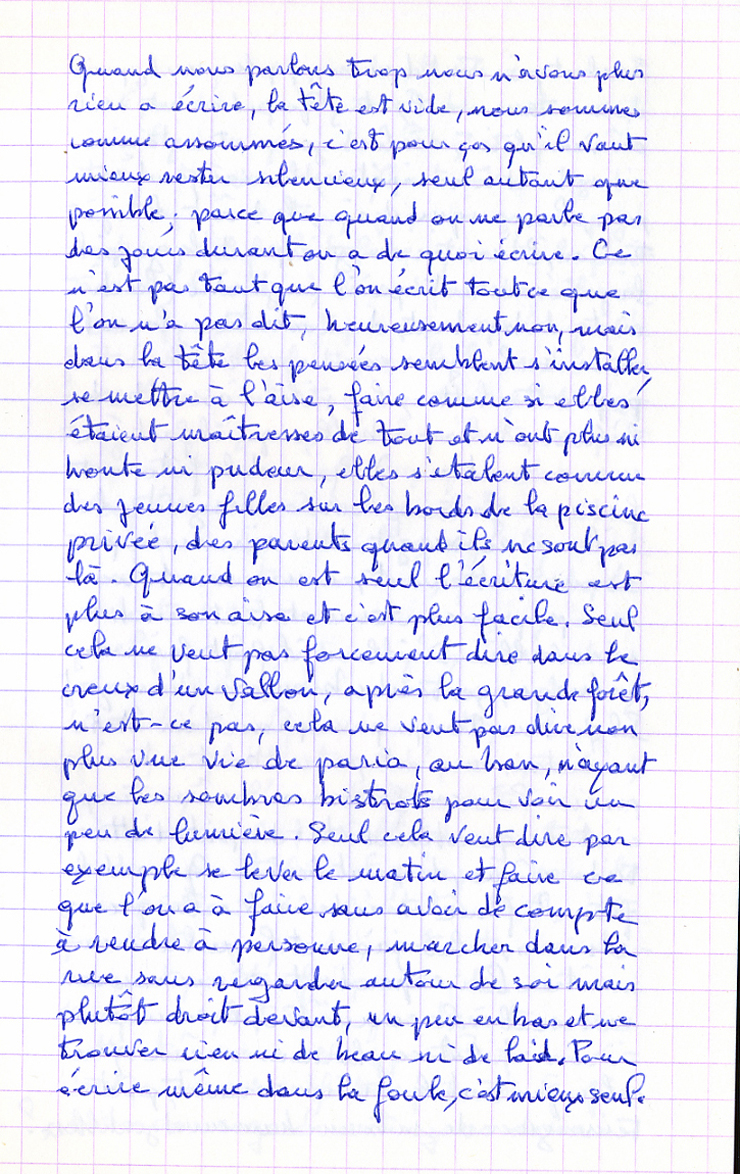 Quand nous parlons trop nous n'avons plus
rien a écrire, la tête est vide, nous sommes
comme assommés, c'est pour ças qu'il vaut
mieux rester silencieux, seul autant que
possible, parce que quand on ne parle pas
des jours durant on a de quoi écrire. Ce
n'est pas tant que l'on écrit tout ce que
l'on n'a pas dit, heureusement non, mais
dans la tête les pensées semblent s'installer,
se mettre à l'aise, faire comme si elles
étaient maîtresses de tout et n'ont plus ni
honte ni pudeur, elles s'étalent comme
des jeunes filles sur les bords de la piscine
privée, des parents quand ils ne sont pas
là. Quand on est seul l'écriture est
plus à son aise et c'est plus facile. Seul
cela ne veut pas forcement dire dans le
creux d'un vallon, après la grande forêt,
n'est-ce pas, cela ne veut pas dire non
plus une vie de paria, au ban, n'ayant
que les sombres bistrots pour voir un
peu de lumière. Seul cela veut dire par
exemple se lever le matin et faire ce
que l'on a à faire sans avoir de compte
à rendre à personne, marcher dans la
rue sans regarder autour de soi mais
plutôt droit devant, un peu en bas et ne
trouver rien ni de beau ni de laid. Pour
écrire même dans la foule, c'est mieux seul.